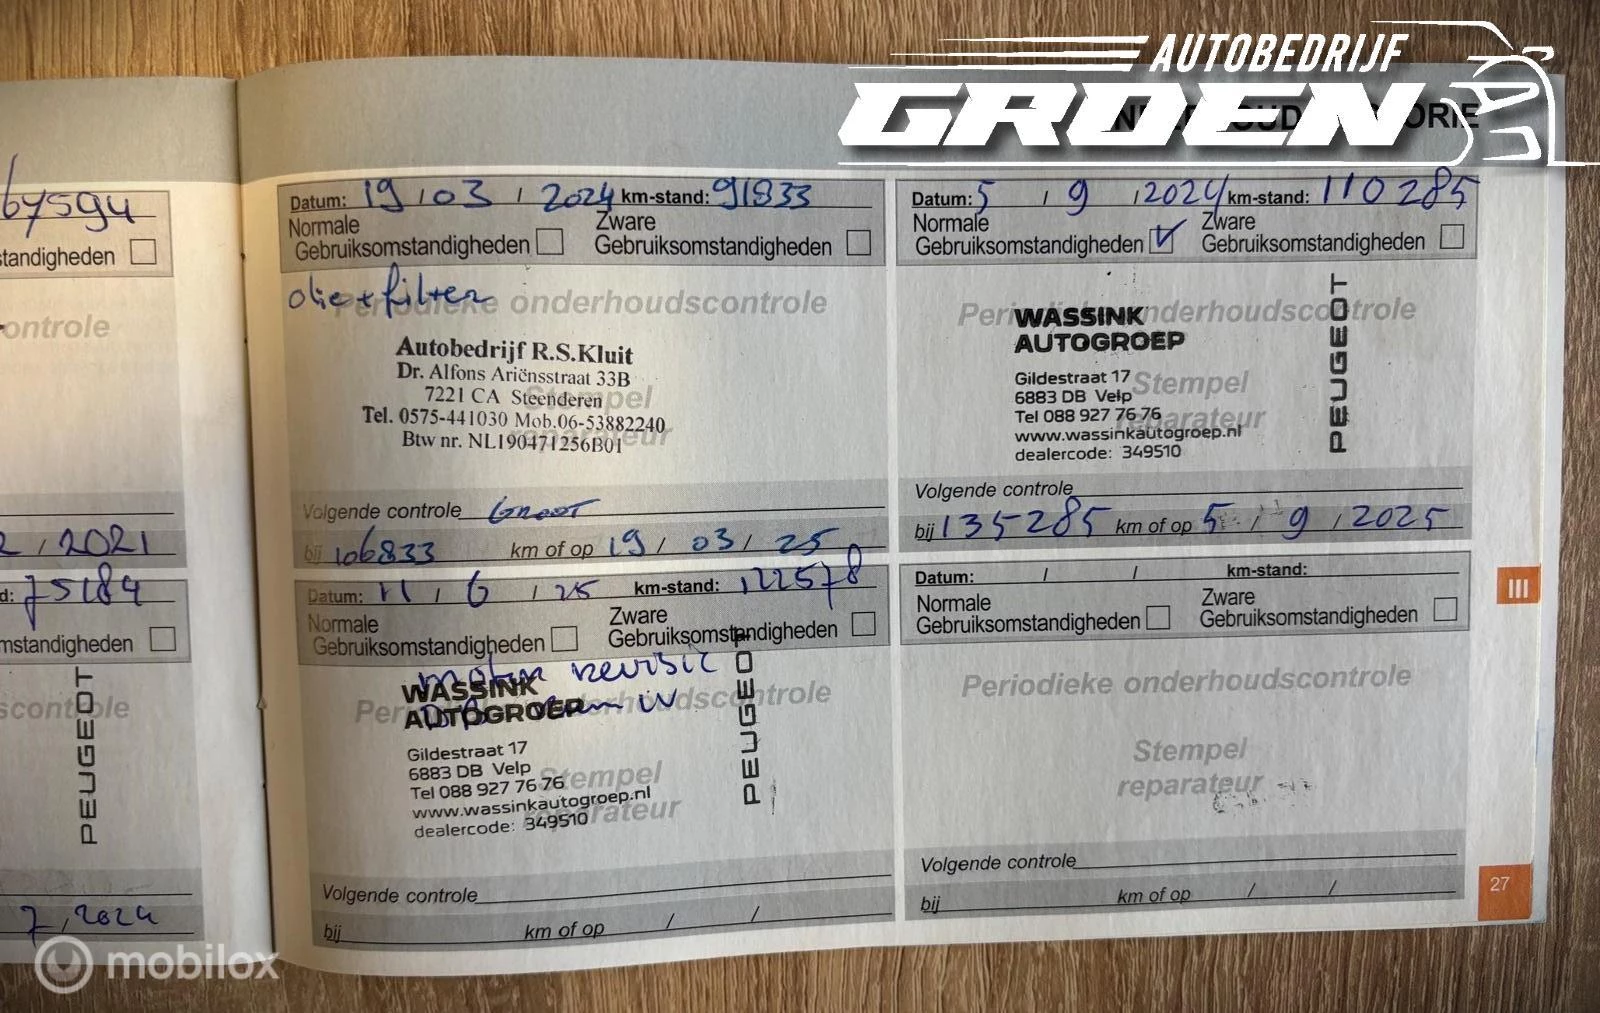 AUTOBEDRIJF
GROEN
67594
standigheden
ontrole
2021
d: 75184
mstandigheden
scontrole
PEUGEOT
7 / 2024
Datum: 19 / 03 / 2024 km-stand: 91833
Normale
Gebruiksomstandigheden
Zware
Gebruiksomstandigheden
olie + filter
Periodieke onderhoudscontrole
Autobedrijf R.S.Kluit
Dr. Alfons Ariënsstraat 33B
7221 CA Steenderen
Tel. 0575-441030 Mob.06-53882240
Btw nr. NL190471256B01
Stempel
reparateur
Volgende controle Groot
bij 106833 km of op 19 / 03 / 25
Datum: 5 / 9 / 2024 km-stand: 110285
Normale
Gebruiksomstandigheden
Zware
Gebruiksomstandigheden
Periodieke onderhoudscontrole
WASSINK
AUTOGROEP
PEUGEOT
Gildestraat 17
6883 DB Velp
Tel 088 927 76 76
www.wassinkautogroep.nl
dealercode: 349510
Stempel
reparateur
Volgende controle
bij 135285 km of op 5 / 9 / 2025
Datum: 11 / 6 / 25 km-stand: 122578
Normale
Gebruiksomstandigheden
Zware
Gebruiksomstandigheden
motor revisie
Periodieke onderhoudscontrole
WASSINK
AUTOGROEP
PEUGEOT
Gildestraat 17
6883 DB Velp
Tel 088 927 76 76
www.wassinkautogroep.nl
dealercode: 349510
Stempel
reparateur
Volgende controle
bij km of op / /
Datum: / / km-stand:
Normale
Gebruiksomstandigheden
Zware
Gebruiksomstandigheden
Periodieke onderhoudscontrole
Stempel
reparateur
Volgende controle
bij km of op / /
III
27
mobilox